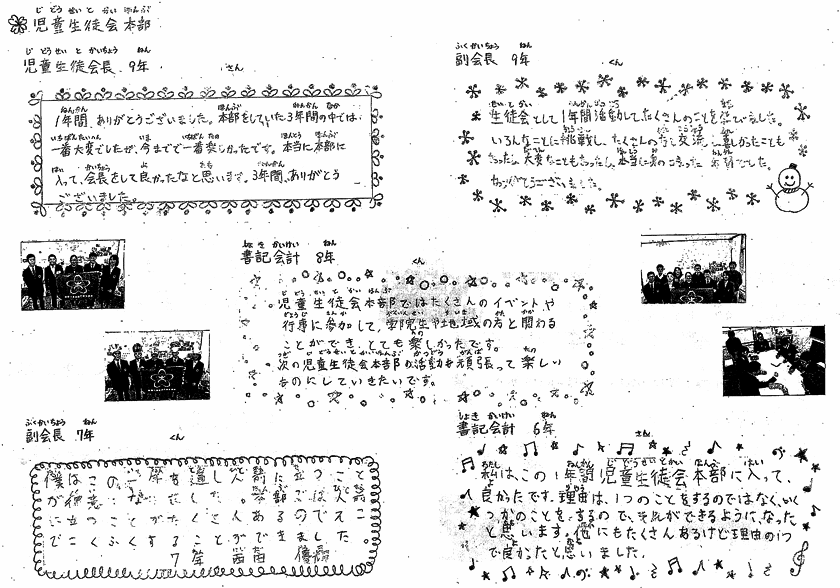 児童生徒会本部
児童生徒会長 9年 さん
1年間、ありがとうございました。本部をしていた3年間の中では、
一番大変でしたが、今までで一番楽しかったです。本当に本部に
入って、会長をして良かったなと思います。3年間、ありがとう
ございました。
副会長 9年 くん
生徒会として1年間活動してたくさんのことを
いろんなことに挑戦し、たくさんの方と交流し楽しかったことも
あったし、大変なこともあったし、本当に
ありがとうございました。
書記会計 8年 くん
児童生徒会本部ではたくさんのイベントや
行事に参加して、学院生や地域の方と関わる
ことができ、とても楽しかったです。
次の児童生徒会本部の活動も頑張って楽しい
ものにしていきたいです。
副会長 7年 くん
僕はこの一年を通し人前に立つこと
が得意になりました。本部では人前
に立つことがたくさんあるのでそこ
でこくふくすることができました。
7年
書記会計 6年 さん
私は、この1年間児童生徒会本部に入って、
良かったです。理由は、1つのことをするのではなく、いく
つかのことをするので、それができるようになった
と思います。他にもたくさんあるけど理由の1つ
で良かったと思いました。